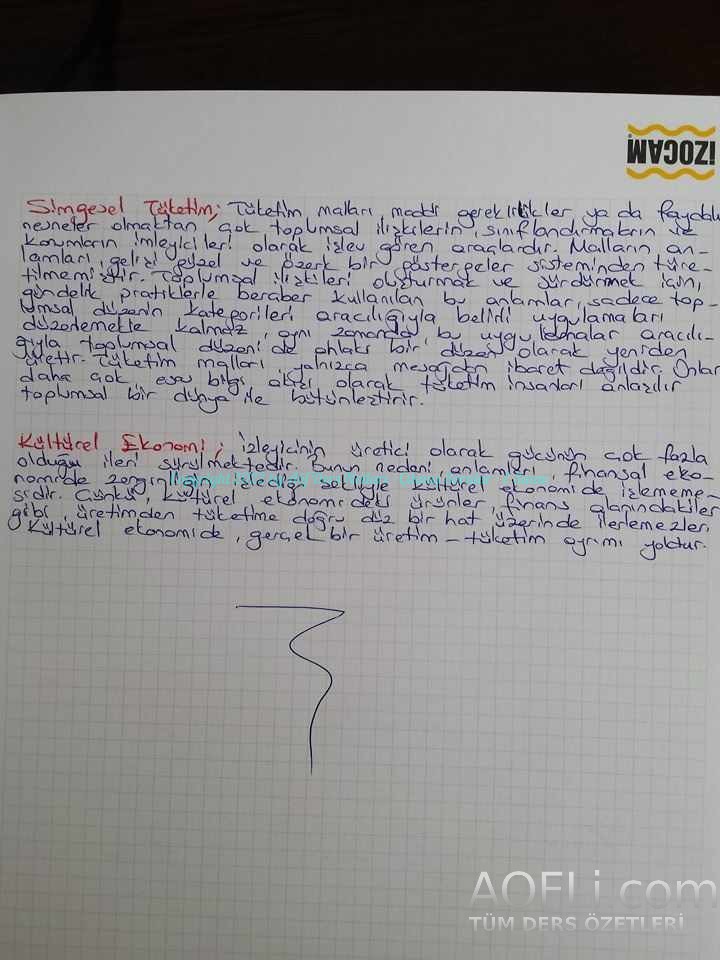 İZOCAM
Simgesel Tüketim; Tüketim malları maddi gereklilikler ya da faydalı
nesneler olmaktan çok toplumsal ilişkilerin, sınıflandırmaların ve
konumların imleyicileri olarak işlev gören araçlardır. Malların an-
lamları, gelişi güzel ve özerk bir göstergeler sisteminden türe-
tilmemiştir. Toplumsal ilişkileri oluşturmak ve sürdürmek için,
gündelik pratiklerle beraber kullanılan bu anlamlar, sadece top-
lumsal düzenin kategorileri aracılığıyla belirli uygulamaları
düzenlemekte kalmaz, aynı zamanda, bu uygulamalar aracılı-
ğıyla toplumsal düzeni de ahlaki bir düzen olarak yeniden
üretir. Tüketim malları, yalnızca mesajdan ibaret değildir. Onlar
daha çok, esas bilgi akışı olarak tüketim insanları anlaşılır
toplumsal bir dünya ile bütünleştirir.
Kültürel Ekonomi; İzleyicinin üretici olarak gücünün çok fazla
olduğu ileri sürülmektedir. Bunun nedeni, anlamları, finansal eko-
nomide zenginliğin izlediği şekliyle kültürel ekonomide izlememe-
sidir. Çünkü, kültürel ekonomideki ürünler, finans alanındakiler
gibi, üretimden tüketime doğru düz bir hat üzerinde ilerlemezler.
Kültürel ekonomide, gerçek bir üretim - tüketim ayrımı yoktur.
AOFLi.com
TÜM DERS ÖZETLERİ